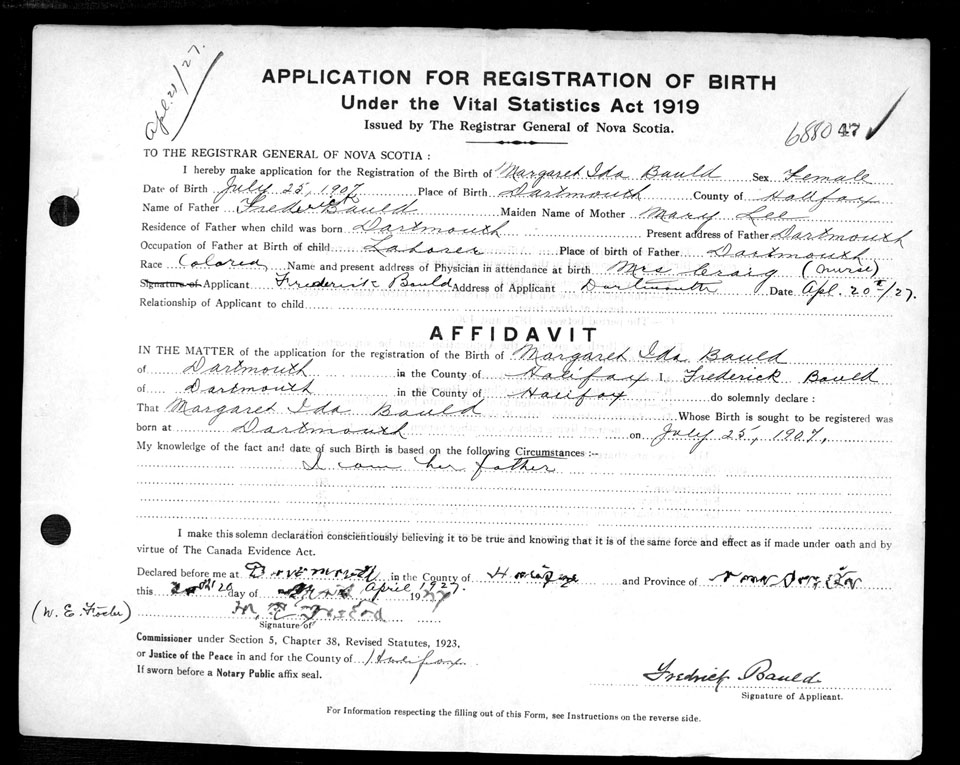 Apl. 21/27.
APPLICATION FOR REGISTRATION OF BIRTH
Under the Vital Statistics Act 1919
Issued by The Registrar General of Nova Scotia.
688047 ✓
TO THE REGISTRAR GENERAL OF NOVA SCOTIA :
I hereby make application for the Registration of the Birth of Margaret Ida Bauld Sex Female
Date of Birth July 25, 1907 Place of Birth Dartmouth County of Halifax
Name of Father Frederick Bauld Maiden Name of Mother Mary Lee
Residence of Father when child was born Dartmouth Present address of Father Dartmouth
Occupation of Father at Birth of child Laborer Place of birth of Father Dartmouth
Race Colored Name and present address of Physician in attendance at birth Mrs Craig (Nurse)
Signature of Applicant Frederick Bauld Address of Applicant Dartmouth Date Apl. 20th/27.
Relationship of Applicant to child
AFFIDAVIT
IN THE MATTER of the application for the registration of the Birth of Margaret Ida Bauld
of Dartmouth in the County of Halifax I, Frederick Bauld
of Dartmouth in the County of Halifax do solemnly declare :
That Margaret Ida Bauld Whose Birth is sought to be registered was
born at Dartmouth on July 25, 1907,
My knowledge of the fact and date of such Birth is based on the following Circumstances :--
I am her father
I make this solemn declaration conscientiously believing it to be true and knowing that it is of the same force and effect as if made under oath and by
virtue of The Canada Evidence Act.
Declared before me at in the County of and Province of
this 20 day of April 1927.
(W. E. )
Signature of
Commissioner under Section 5, Chapter 38, Revised Statutes, 1923,
or Justice of the Peace in and for the County of Halifax
If sworn before a Notary Public affix seal.
Fredrick Bauld
Signature of Applicant.
For Information respecting the filling out of this Form, see Instructions on the reverse side.